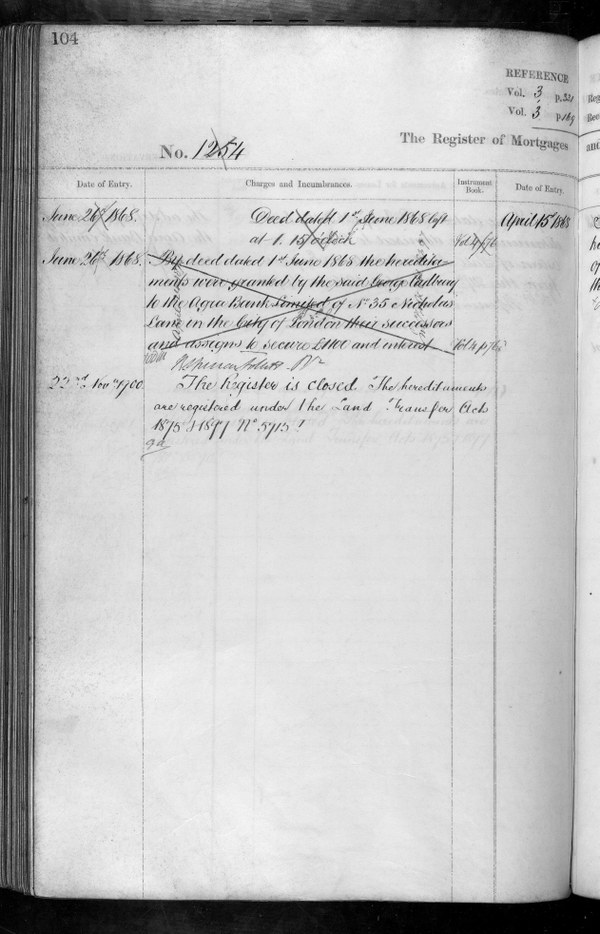 104
REFERENCE
Vol. 3 p. 321
Vol. 3 p. 169
No. 1254
The Register of Mortgages
Date of Entry.
Charges and Incumbrances.
Instrument Book.
Date of Entry.
June 26th 1868.
Deed dated 1st June 1868 left
April 15th 1868
at 1. 15 o'clock
June 26th 1868.
By deed dated 1st June 1868 the heredita
ments were granted by the said George
to the Agra Bank Limited of No 35 Nicholas
Lane in the City of London their successors
and assigns to secure and interest
22nd Nov 1900
The Register is closed. The hereditaments
are registered under the Land Transfer Acts
1875 & 1897 No 5715